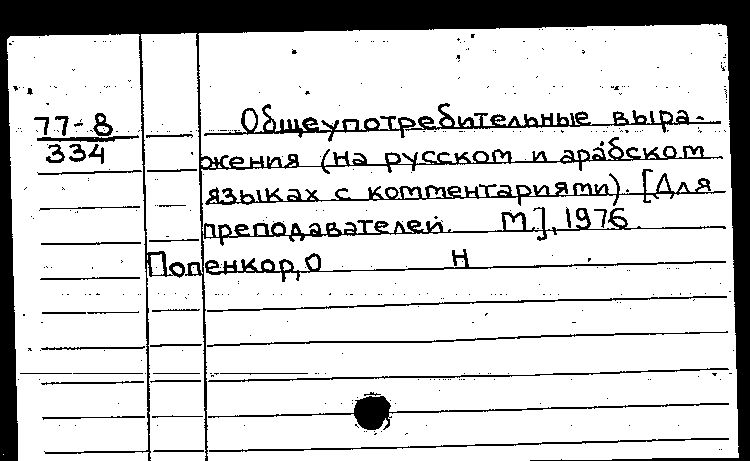 77-8
334
Общеупотребительные выра-
жения (на русском и арабском
языках с комментариями). [Для
преподавателей. М.], 1976.
Попенкор, О Н